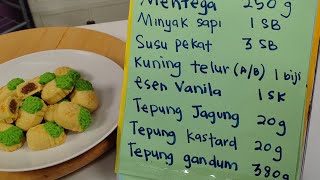 Mentega 250 g
Minyak sapi 1 SB
Susu pekat 3 SB
Kuning telur (A/B) 1 biji
esen Vanila 1 SK
Tepung Jagung 20g
Tepung kastard 20g
Tepung gandum 380g